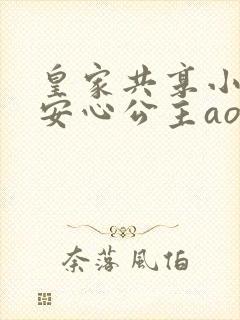 皇家共享小
安心公主ao
奈落風怕